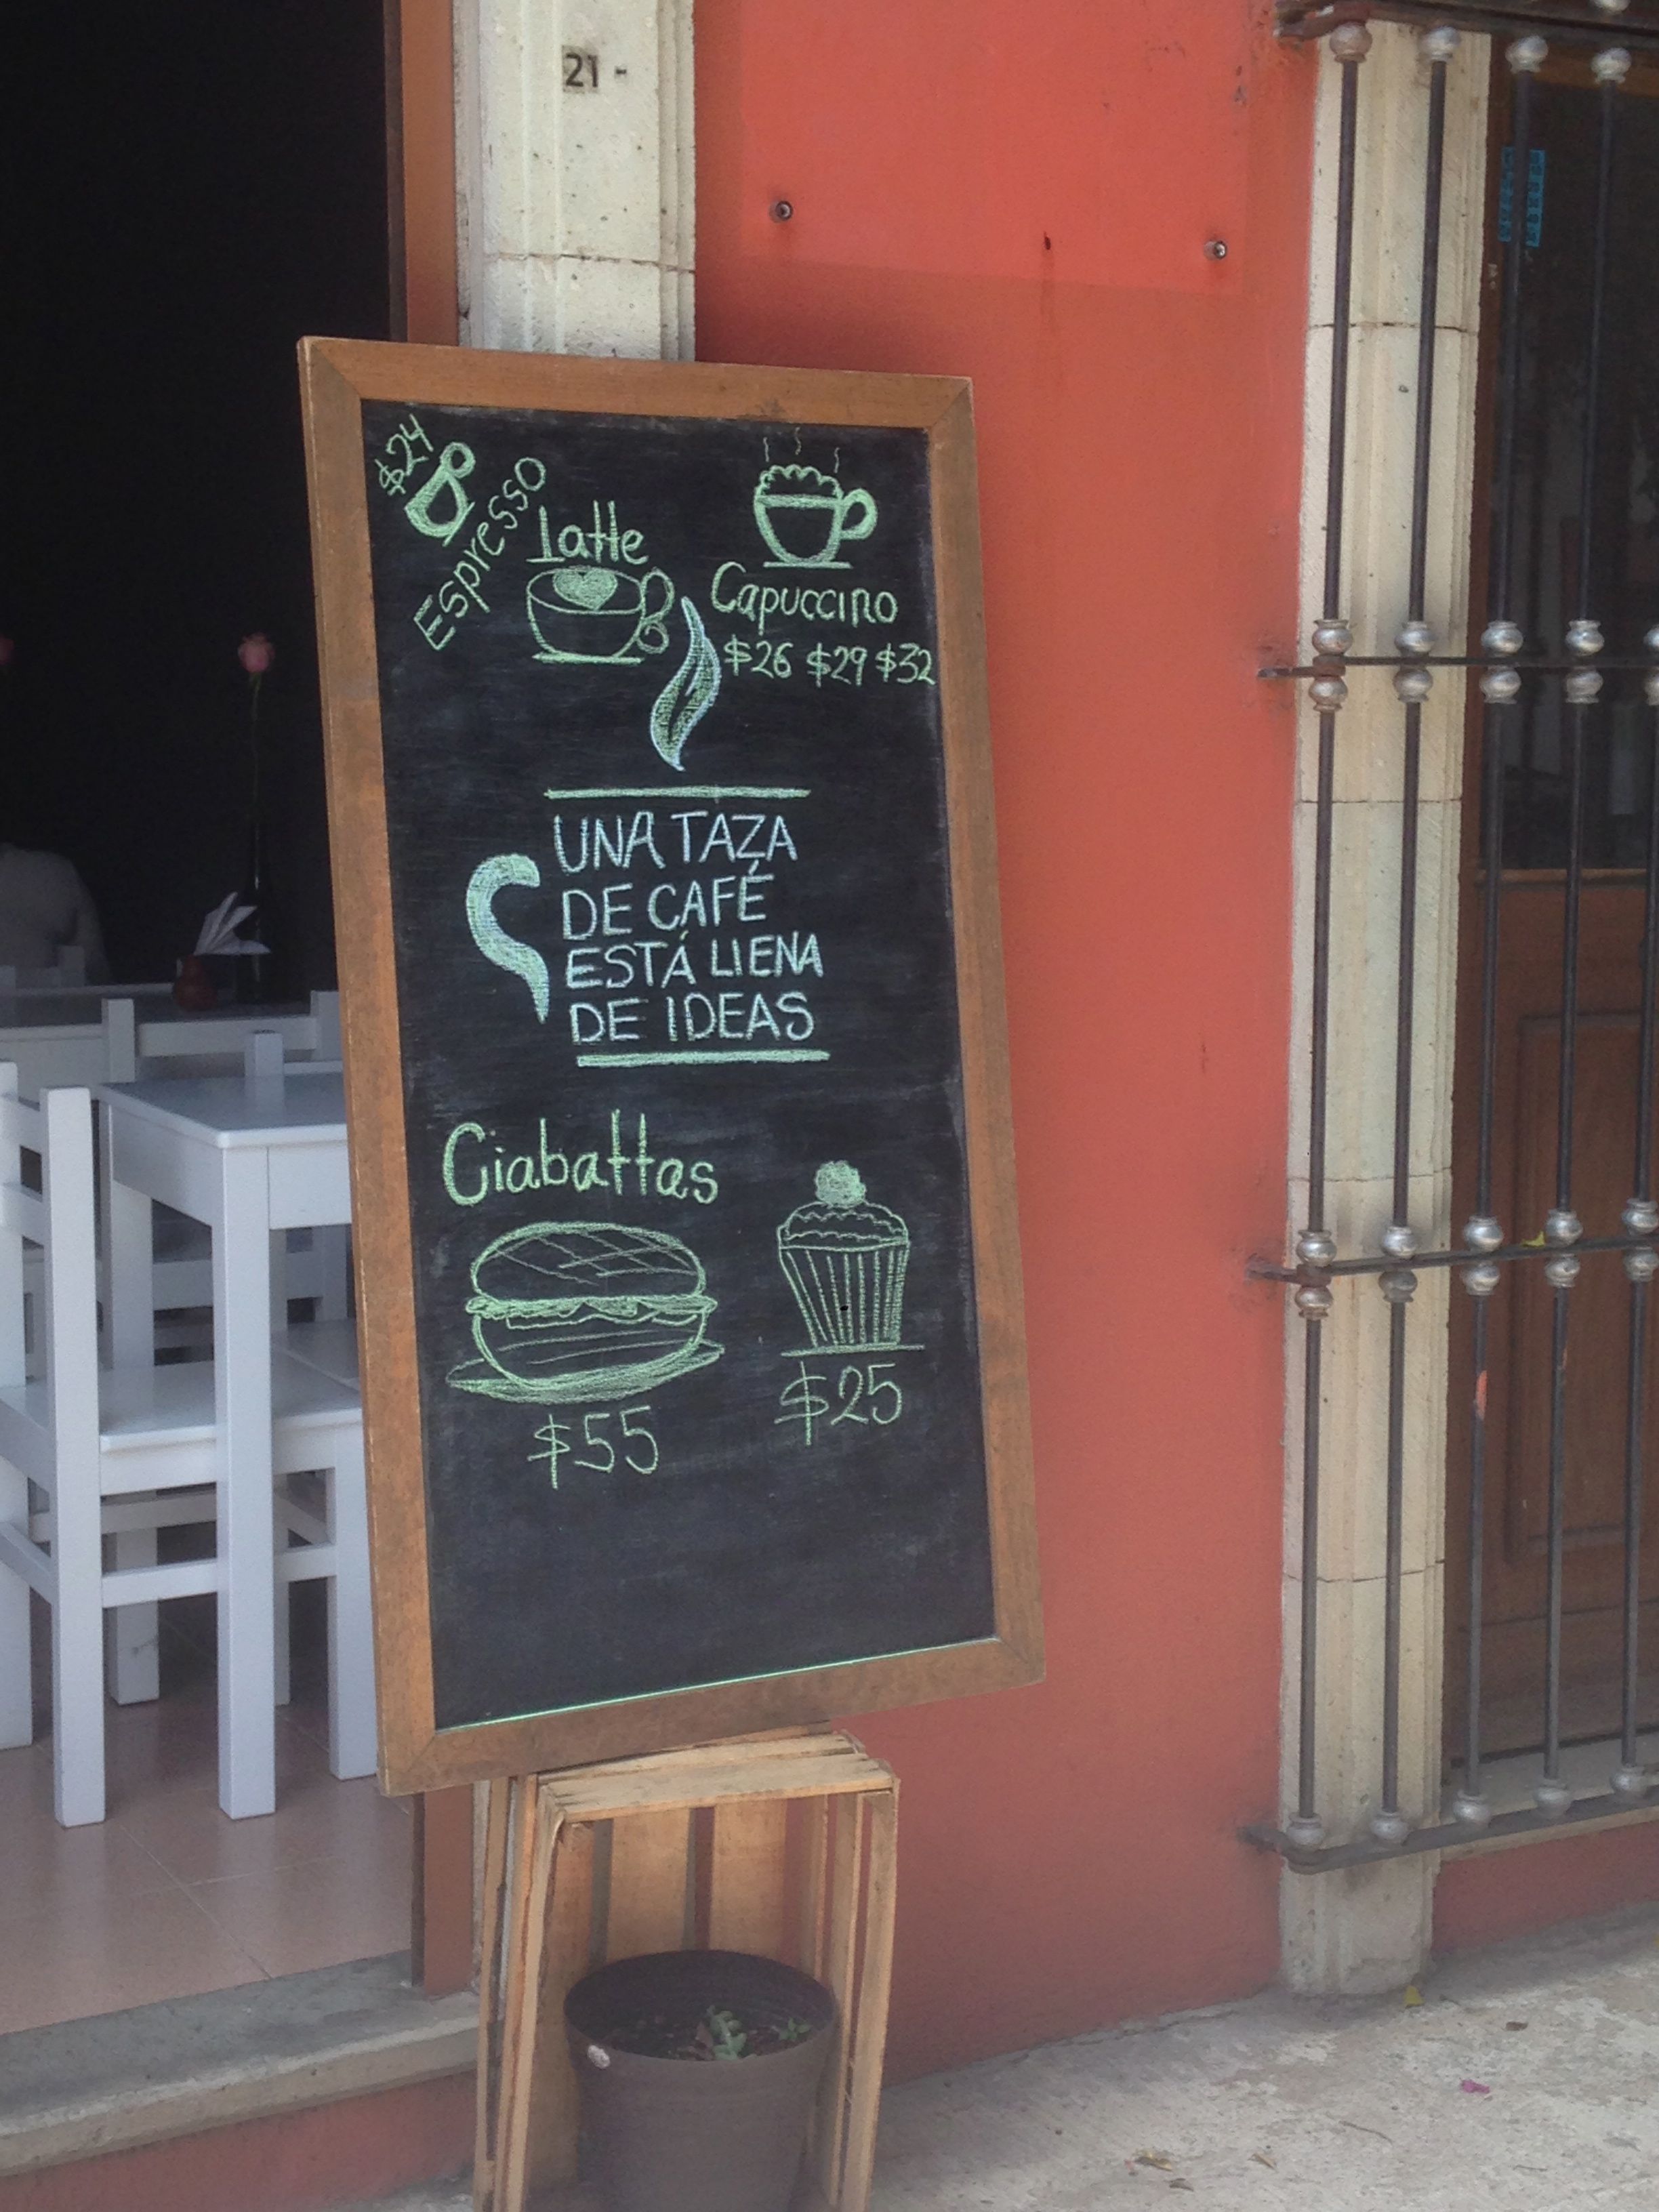 21 -
$24
Espresso
Latte
Capuccino
$26 $29 $32
UNA TAZA
DE CAFÉ
ESTÁ LlENA
DE IDEAS
Ciabattas
$55
$25